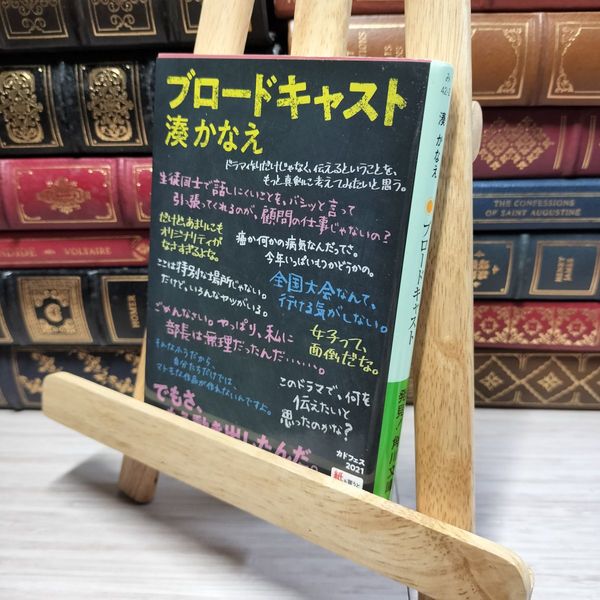 ブロードキャスト
湊かなえ
ドラマ作りだけじゃなく、伝えるということを、
もっと真剣に考えてみたいと思う。
生徒同士で話しにくいことを、バシッと言って
引っ張ってくれるのが、顧問の仕事じゃないの?
だけど、あまりにも
オリジナリティが
なさすぎるよな。
癌か何かの病気なんだってさ。
今年いっぱいもつかどうかの。
ここは特別な場所じゃない。
だけど、いろんなヤツがいる。
全国大会なんて、
行ける気がしない。
ごめんなさい。やっぱり、私に
部長は無理だったんだ……。
女子って、
面倒だな。
そんなふうだから、
自分たちだけでは
マトモな作品が作れないんですよ。
このドラマで、何を
伝えたいと
思ったのかな?
でもさ、
動き出したんだ。
カドフェス
2021
湊かなえ
ブロードキャスト
発見!
角川文
VOLTAIRE
HOMER
THE CONFESSIONS
OF SAINT AUGUSTINE